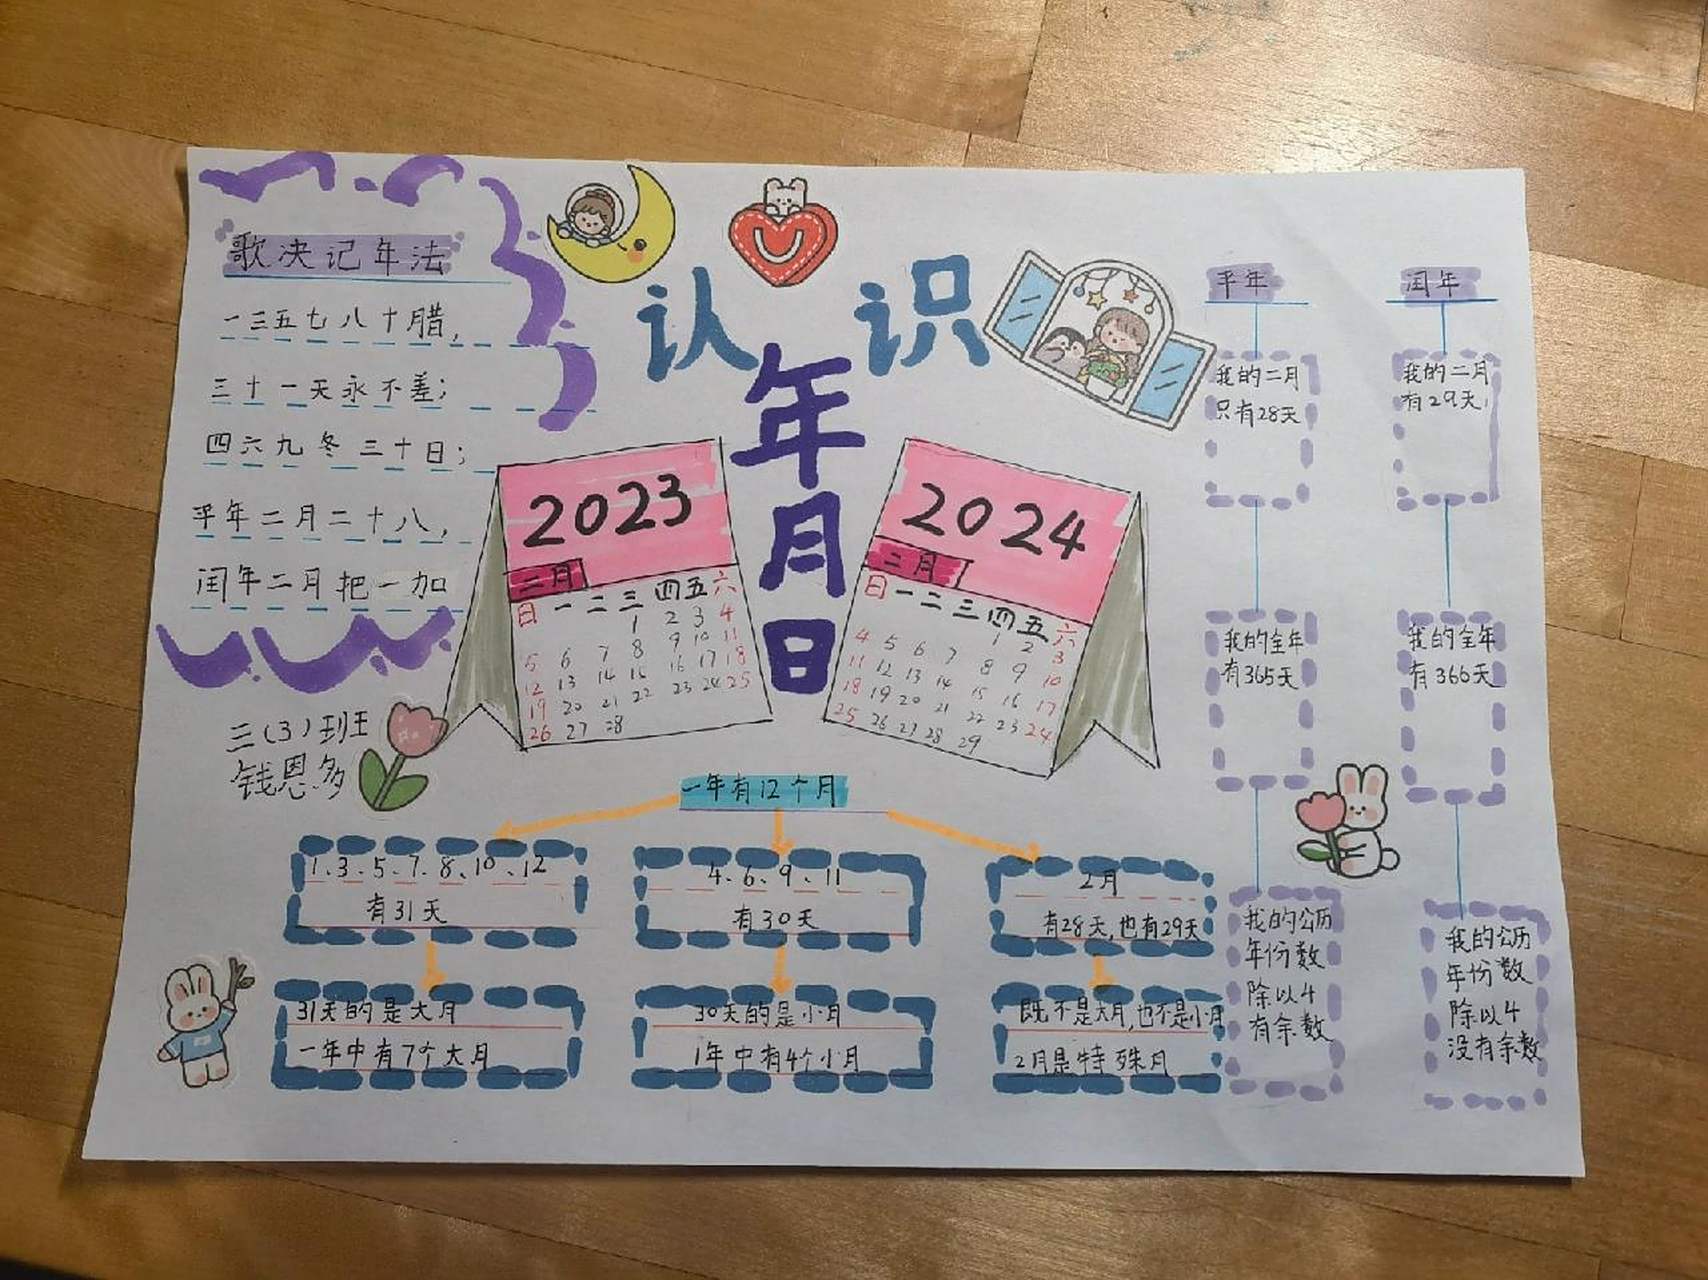 认 识
年
月
日
歌决记年法
一三五七八十腊,
三十一天永不差;
四六九冬三十日;
平年二月二十八,
闰年二月把一加
三(3)班
钱恩多
2023
二月
日 一 二 三 四 五 六
1 2 3 4
5 6 7 8 9 10 11
12 13 14 15 16 17 18
19 20 21 22 23 24 25
26 27 28
2024
二月
日 一 二 三 四 五 六
1 2 3
4 5 6 7 8 9 10
11 12 13 14 15 16 17
18 19 20 21 22 23 24
25 26 27 28 29
一年有12个月
1、3、5、7、8、10、12
有31天
31天的是大月
一年中有7个大月
4、6、9、11
有30天
30天的是小月
1年中有4个小月
2月
有28天,也有29天
既不是大月,也不是小月
2月是特殊月
平年
我的二月
只有28天
我的全年
有365天
我的公历
年份数
除以4
有余数
闰年
我的二月
有29天
我的全年
有366天
我的公历
年份数
除以4
没有余数